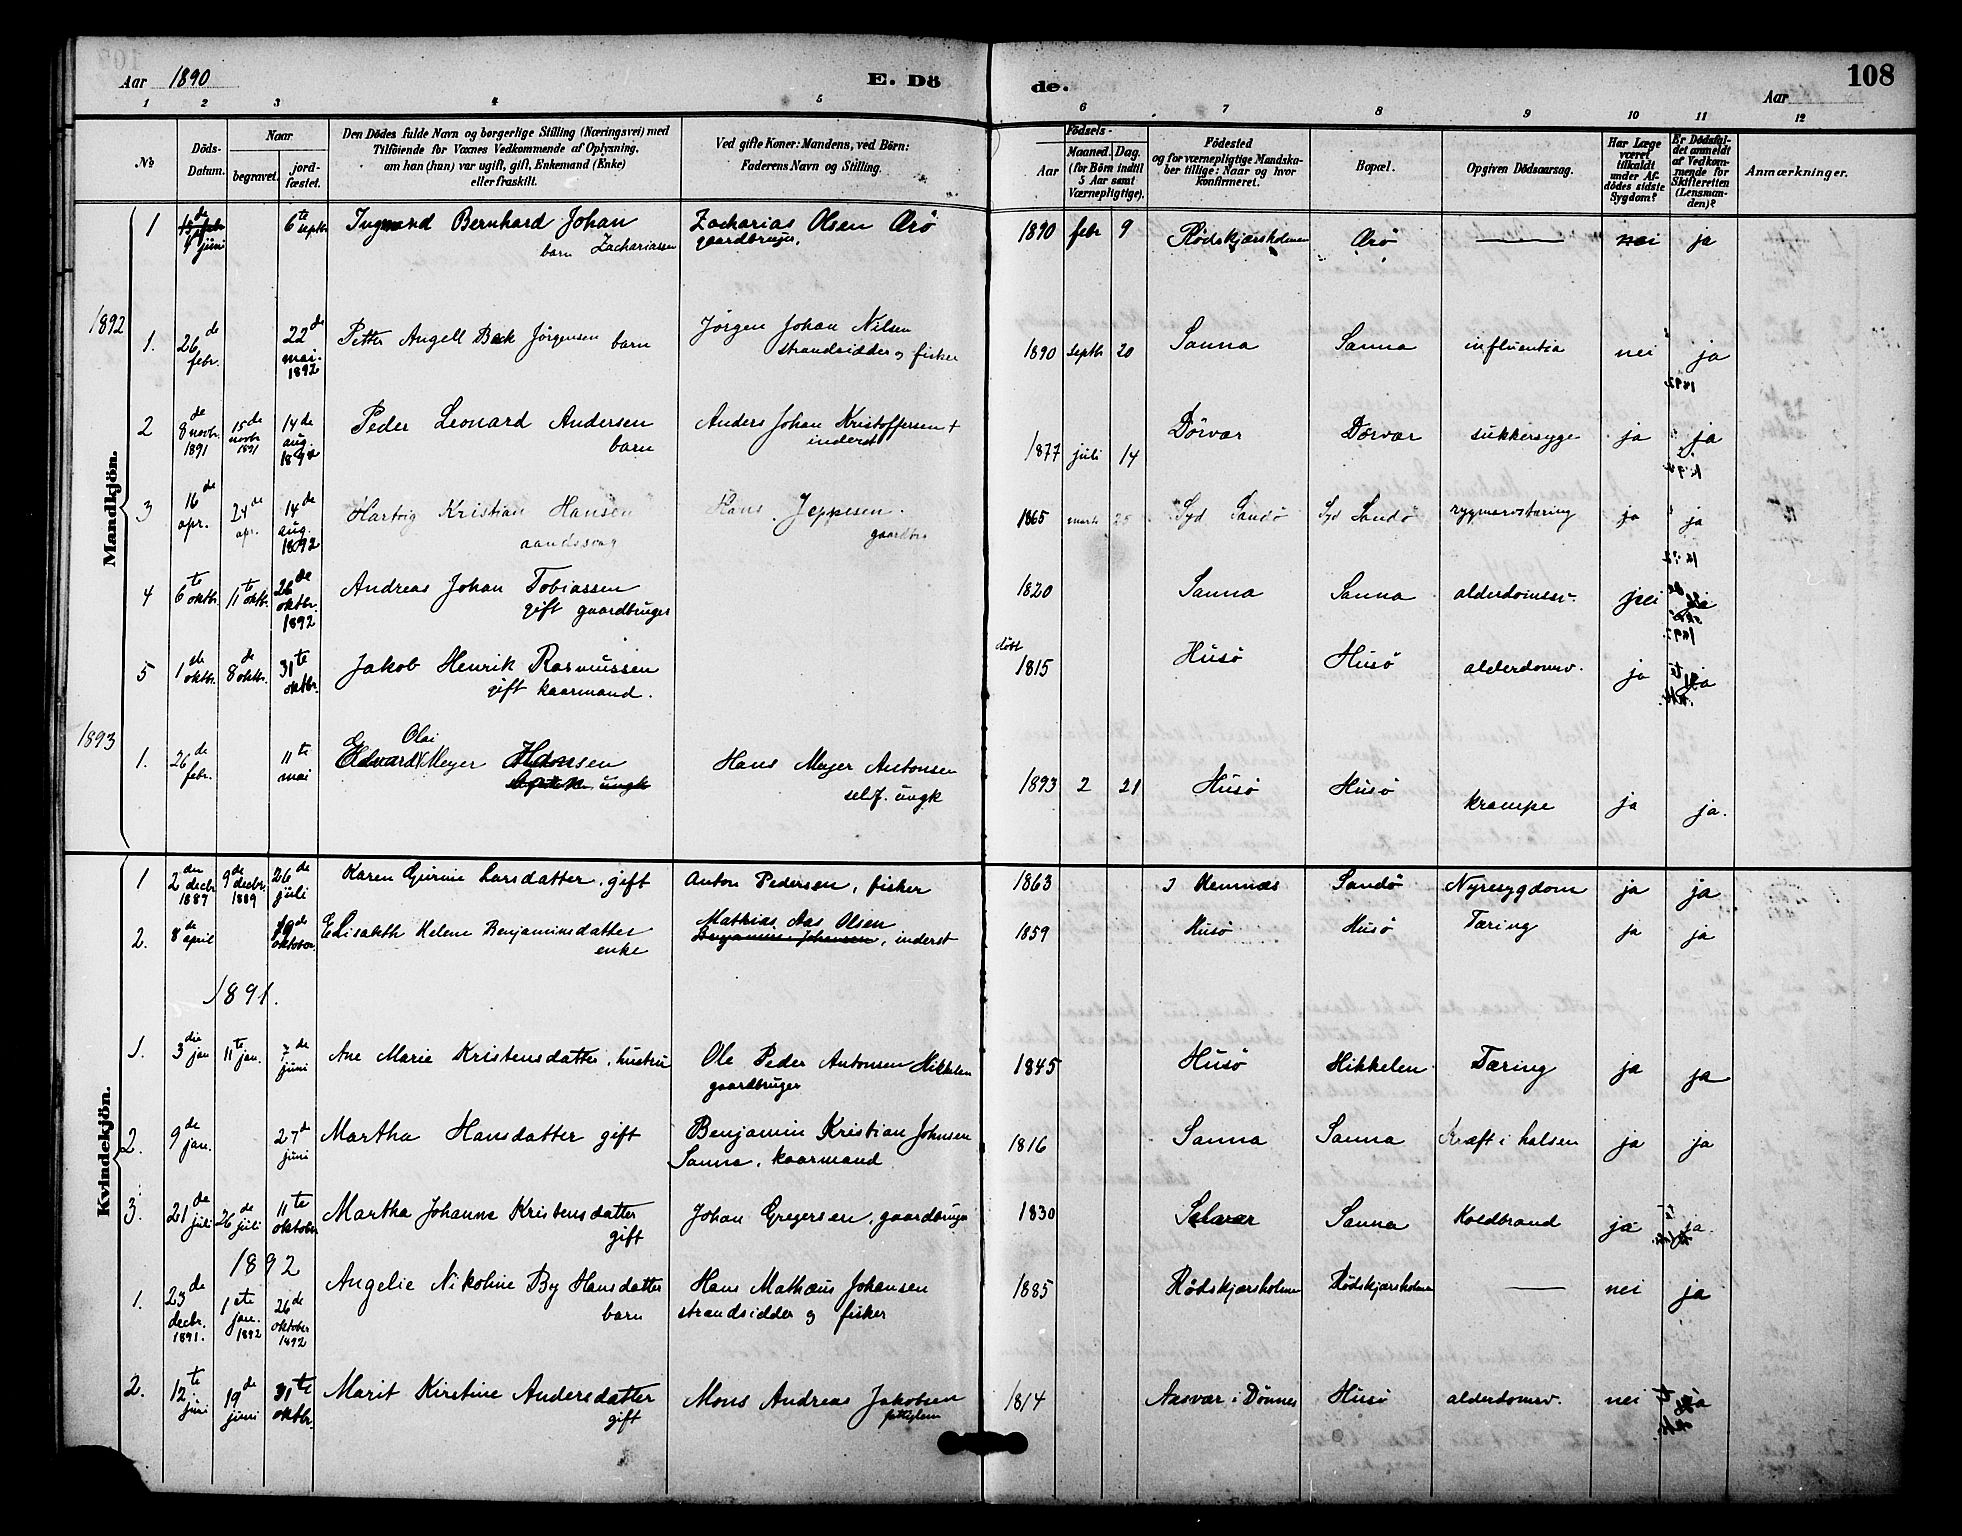 Aar 1890
E. Dö
de.
Aar
108
1 2 3 4 5 6 7 8 9 10 11 12
No
Döds-
Datum.
Naar
begravet.
jord-
fæstet.
Den Dödes fulde Navn og borgerlige Stilling (Næringsvei) med
Tilföiende for Voxnes Vedkommende af Oplysning,
om han (hun) var ugift, gift, Enkemand (Enke)
eller fraskilt.
Ved gifte Koner: Mandens, ved Börn:
Faderens Navn og Stilling.
Födsels-
Aar
Maaned. Dag.
(for Börn indtil
5 Aar samt
Værnepligtige).
Födested
og for værnepligtige Mandska-
ber tillige: Naar og hvor
konfirmeret.
Bopæl.
Opgiven Dödsaarsag.
Har Læge
været
tilkaldt
under Af-
dödes sidste
Sygdom?
Er Dödsfal-
det anmeldt
af Vedkom-
mende for
Skifteretten
(Lensman-
den)?
Anmærkninger.
Mandkjön.
1 juni 6te septbr Ingmard Bernhard Johan Zacharias Olsen Örö 1890 febr 9 Rödskjærsholmen Örö — nei ja
barn Zachariassen gaardbruger.
1892
1. 26de febr. 22de mai. 1892 Petter Angell Bek Jörgensen barn Jörgen Johan Nilsen 1890 septbr 20 Sanna Sanna influentsa nei ja
strandsidder og fisker
2 8de novbr. 1891 15de novbr. 1891 14de aug. 1892 Peder Leonard Andersen Anders Johan Kristoffersen + 1877 juli 14 Dörvær Dörvær sukkersyge ja ja
barn inderst
3 16de apr. 24de apr. 14de aug. 1892 Hartvig Kristian Hansen Hans Jeppesen. 1865 marts 25 Syd Sandö Syd Sandö rygmarvstæring ja ja
aandssvag gaardbr
4 6te oktbr. 11te oktbr. 26de oktbr. 1892 Andreas Johan Tobiassen 1820 Sanna Sanna alderdomssv. nei ja
gift gaardbruger
5 1de oktbr. 8de oktbr. 31te oktbr. Jakob Henrik Rasmussen döbt 1815 Husö Husö alderdomsv. ja ja
gift kaarmand.
1893
1. 26de febr. 11te mai Edvard Olai Meyer Hansen Hans Meyer Antonsen 1893 2 21 Husö Husö krampe ja ja.
ungk self. ungk
Kvindekjön.
1 2den decbr. 1889 9de decbr. 1889 26de juli Karen Gurine Larsdatter, gift Anton Pedersen, fisker 1863 Hemnæs Sandö Nyresygdom ja ja
2. 8de april oktober Elisabeth Helene Benjaminsdatter Mathias Aas Olsen 1859 Husö Husö Tæring ja ja
enke Benjamin Johansen, inderst
1891.
1. 3die jan 11te jan. 7de juni Ane Marie Kristensdatter, hustru Ole Peder Antonsen Hikkelen 1845 Husö Hikkelen Tæring ja ja
gaardbruger
2. 9de jan. 27de juni Martha Hansdatter gift Benjamin Kristian Johnsen 1816 Sanna Sanna Kræft i halsen ja ja
Sanna, kaarmand
3. 21de juli 26de juli 11te oktober Martha Johanna Kristensdatter Johan Gregersen, gaardbruger 1830 Selvær Sanna Koldbrand ja ja
gift
1892
1. 23de decbr. 1891. 1ste jan. 1892 26de oktober 1892 Angelie Nikoline By Hansdatter Hans Mathæus Johansen 1885 Rödskjærsholmen Rödskjærsholmen — nei ja
barn strandsidder og fisker
2. 12te juni 19de juni 31te oktbr. Marit Kirstine Andersdatter Mons Andreas Jakobsen 1814 Aasvær i Dönnes Husö alderdomsv. nei ja
gift fattiglem